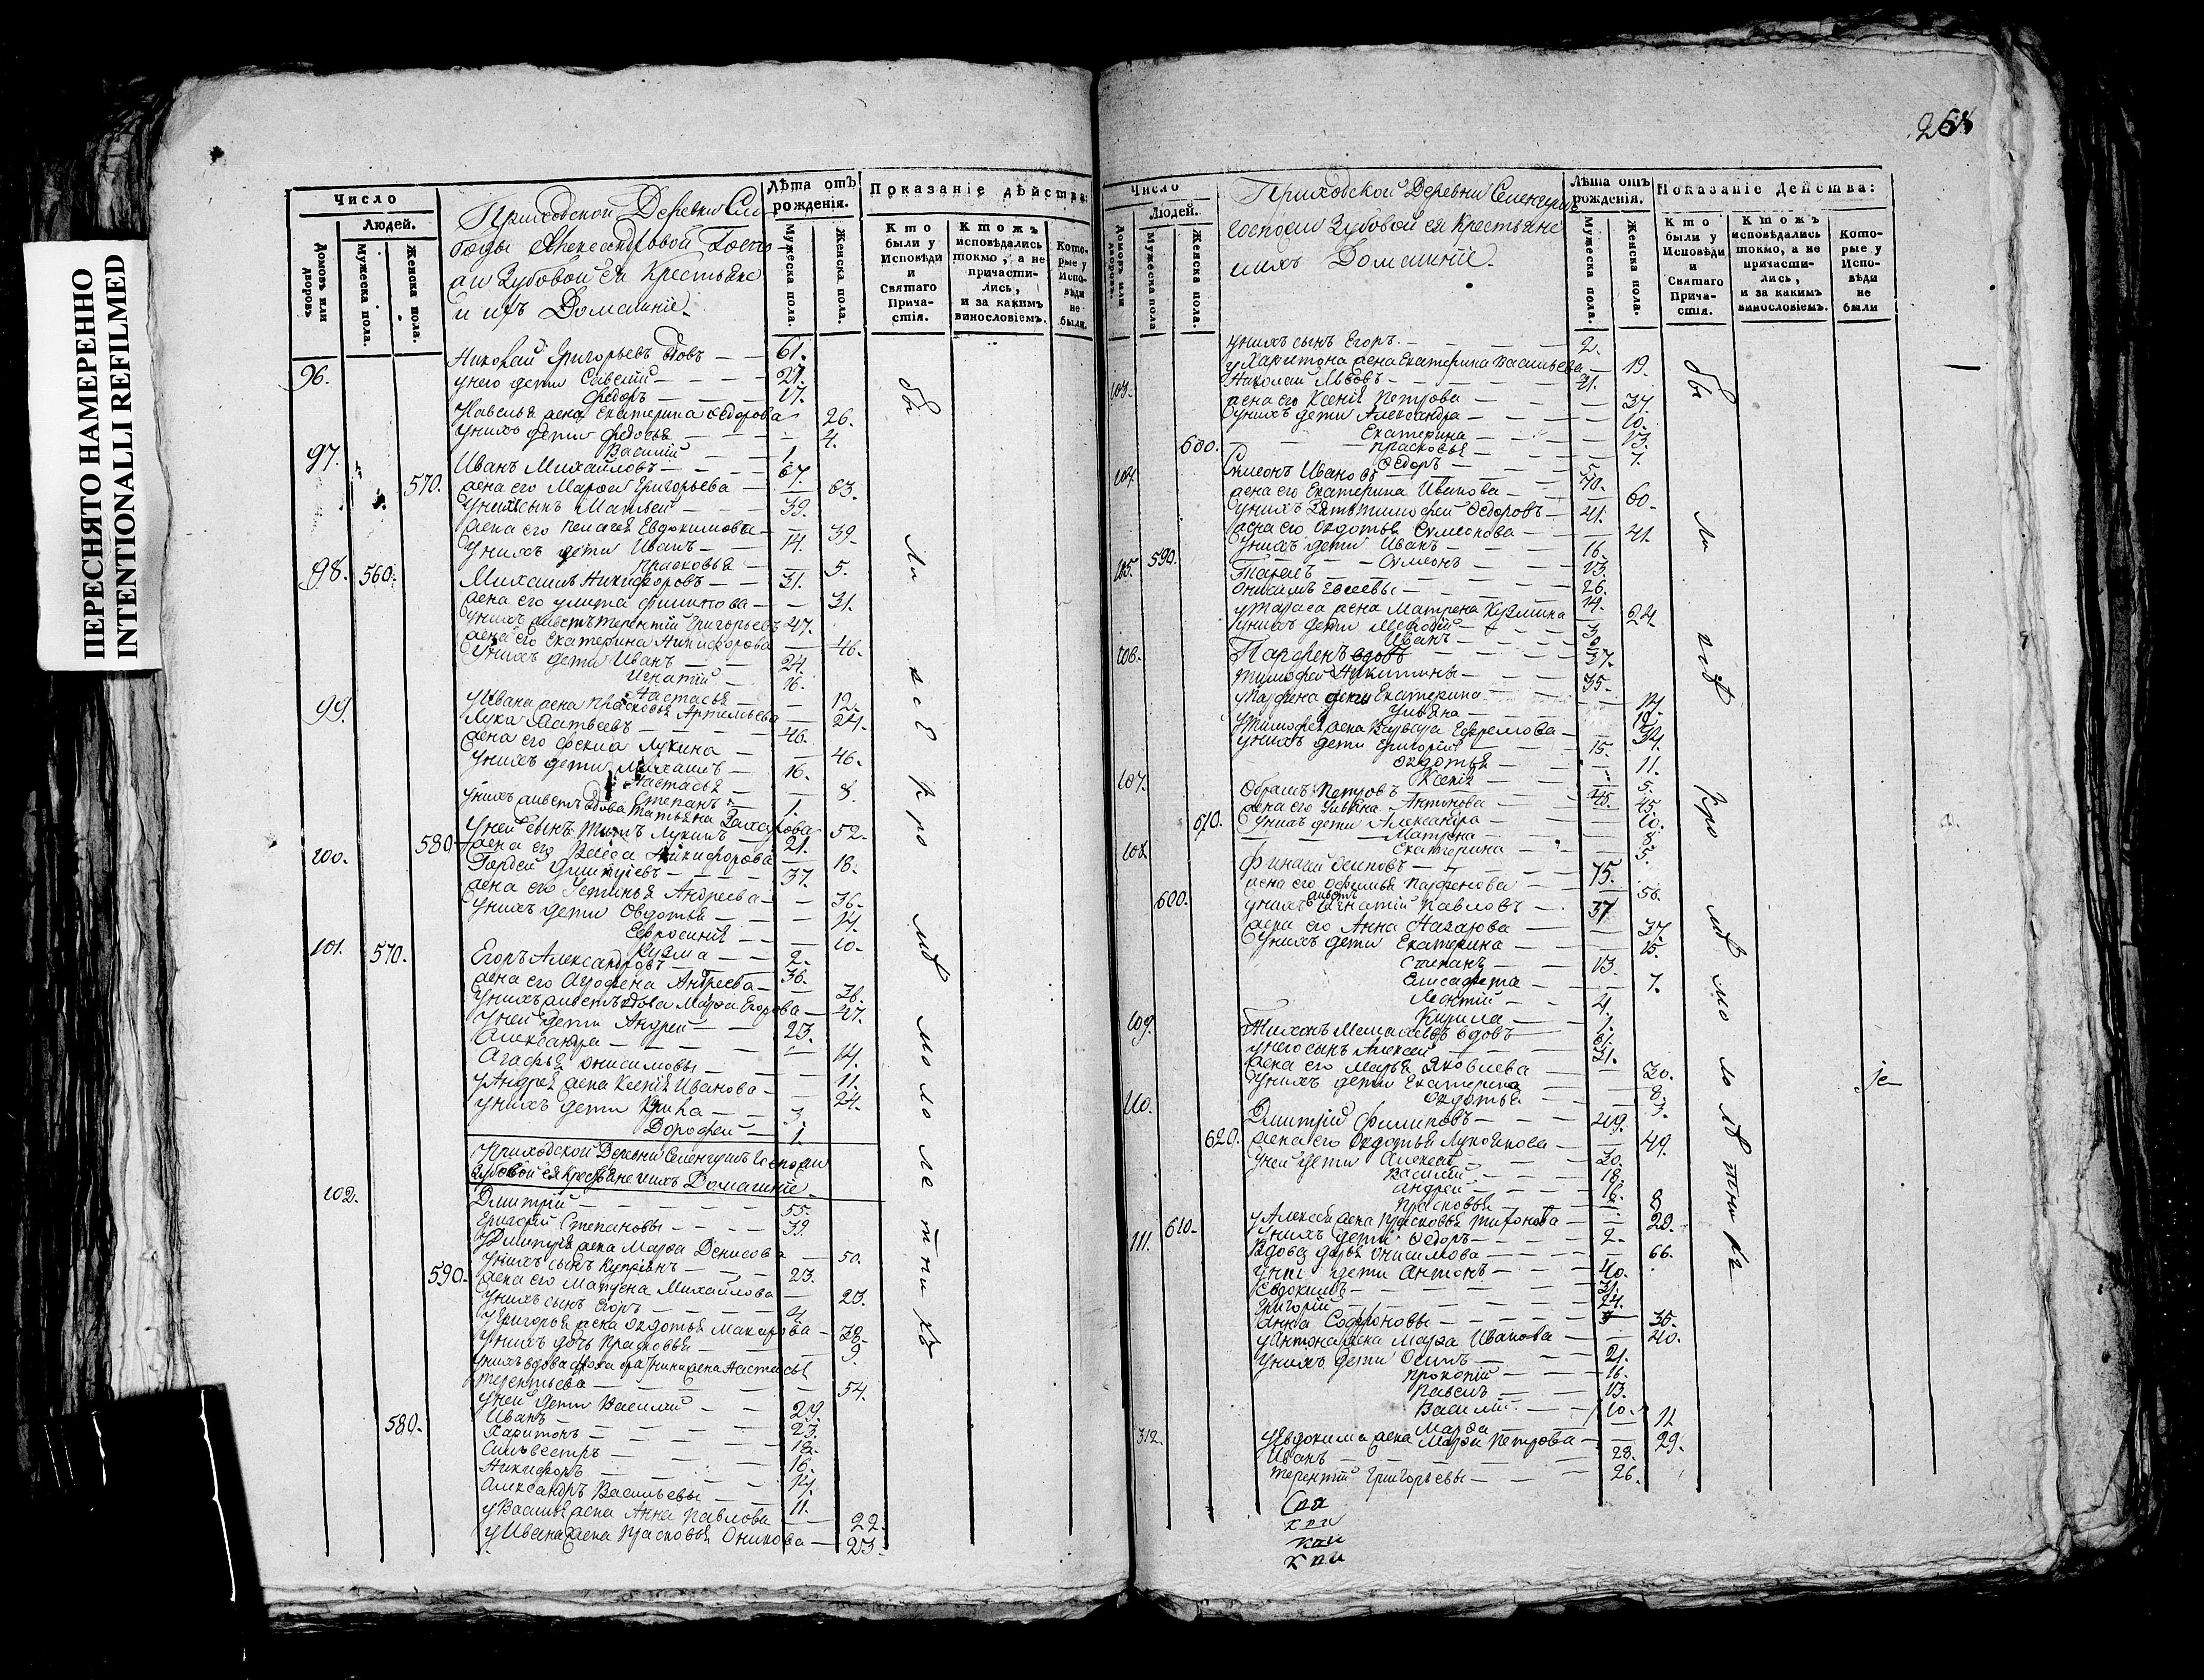 ПЕРЕСНЯТО НАМЕРЕННО
INTENTIONALLI REFILMED
Число
Людей.
Домовъ или дворовъ
Мужеска пола.
Женска пола.
Приходской Деревни Сло
боды Александровой Госпо
жи Зубовой ея Крестьяне
и ихъ Домашніе
Лѣта отъ рожденія.
Мужеска пола.
Женска пола.
Показаніе дѣйства:
Кто были у Исповѣди и Святаго Причастія.
Ктожъ исповѣдались токмо, а не причастились, и за какимъ винословіемъ.
Которые у Исповѣди не были.
96. Николай Григорьевъ вдовъ — 61.
у него дети Савелий — 27.
Федоръ — 17.
У Савелья жена Екатерина Федорова 26.
у нихъ дети Федосья — 4.
Василий — 1.
97. Иванъ Михайловъ — 67.
570. жена его Марфа Григорьева — 63.
у нихъ сынъ Матвей — 39.
жена его Пелагея Евдокимова — 39.
у нихъ дети Иванъ — 14.
Прасковья — 5.
98. 560. Михаилъ Никифоровъ — 31.
жена его Улита Филипова — 31.
у нихъ живетъ Терентий Григорьевъ 47.
жена его Екатерина Никифорова — 46.
у нихъ дети Иванъ — 24.
Игнатий — 16.
Настасья — 12.
У Ивана жена Прасковья Артемьева — 24.
99. Лука Матвеевъ — 46.
жена его Фекла Лукина — 46.
у нихъ дети Михаилъ — 16.
Настасья — 8.
Степанъ — 1.
у нихъ живетъ вдова Татьяна Захарова 52.
у ней сынъ Титъ Лукинъ — 21.
580 жена его Васса Никифорова — 18.
100. Гордей — 37.
жена его Устинья Андреева — 36.
у нихъ дети Овдотья — 14.
Евфросиния — 10.
Кузма — 2.
101. 570. Егоръ Александровъ — 36.
жена его Агрофена Андреева — 36.
у нихъ живетъ вдова Марфа Егорова — 47.
у ней дети Андрей — 23.
Александра — 14.
Агафья Онисимовы — 11.
у Андрея жена Ксения Иванова — 24.
у нихъ дети — 3.
Дорофей — 1.
Приходской Деревни Селенгушъ Госпожи
Зубовой ея Крестьяне и ихъ Домашніе
102. Дмитрий — 55.
Григорий Степановы — 39.
У Дмитрия жена Марфа Денисова — 50.
у нихъ сынъ Куприянъ — 23.
590. жена его Матрена Михайлова — 23.
у нихъ сынъ Егоръ — 4
у Григорья жена Овдотья Макарова — 38.
у нихъ дочь Прасковья — 9.
у нихъ вдова жена Настасья
Терентьева — 54.
у ней дети Василий — 29.
Иванъ — 23.
580. Харитонъ — 18.
Силвестръ — 16.
Никифоръ — 14.
Александръ Васильевы — 11.
у Василья жена Анна Павлова — 22.
у Ивана жена Прасковья — 23.
бы
ли
все
кро
мѣ
ма
ло
ле
тни
хъ
268
Число
Людей.
Домовъ или дворовъ.
Мужеска пола
Женска пола.
Приходской Деревни Селенгушъ
госпожи Зубовой ея Крестьяне
и ихъ Домашніе
Лѣта отъ рожденія.
Мужеска пола.
Женска пола.
Показаніе действа:
Кто были у Исповѣди и Святаго Причастія.
Ктожъ исповѣдались токмо, а не причастились, и за какимъ винословіемъ.
Которые у Исповѣди не были
у нихъ сынъ Егоръ — 2.
у Харитона жена Екатерина Васильева — 19.
103. Николай Львовъ — 41.
жена его Ксения Петрова — 37.
у нихъ дети Александра — 10.
Екатерина — 13.
600. Прасковья — 7.
Федоръ — 5.
104. Симеонъ Ивановъ — 70.
жена его Екатерина Иванова — 60.
у нихъ зять Тимофей Федоровъ — 41.
жена его Овдотья Симеонова — 41.
у нихъ дети Иванъ — 16.
590. Симеонъ — 13.
105. Тарасъ — 26.
Онисимъ Евсеевы — 14.
у Тараса жена Матрена Кузмина — 24.
у нихъ дети Мефодий — 3.
Иванъ
106. Парфенъ вдовъ — 37.
Тимофей Никитины — 35.
у Парфена дети Екатерина — 14.
Ульяна
у Тимофея жена Варвара Ефремова — 34.
у нихъ дети Григорий — 15.
Овдотья — 11.
Ксения — 5.
107. Обрамъ Петровъ — 45.
жена его Ульяна Антонова — 45.
610. у нихъ дети Александра — 10.
Матрона — 8.
Екатерина — 5.
108. Осиповъ — 75.
жена его Офимья Парфенова — 56.
600. у нихъ живетъ Игнатий Павловъ — 37
жена его Анна Назарова — 37.
у нихъ дети Екатерина — 15.
Степанъ — 13.
Елисафета — 7.
Леонтий — 4.
Кирила — 1.
109. Тихонъ вдовъ — 61.
у него сынъ Алексей — 31.
жена его Марья Яковлева — 30.
у нихъ дети Екатерина — 8.
Овдотья — 3.
110. Дмитрий Филиповъ — 49.
620. жена его Овдотья Лукоянова — 49.
у ней дети Алексей — 30.
Василий — 18.
Андрей — 16.
Прасковья — 8
у Алексея жена Прасковья — 28.
610. у нихъ дети Федоръ — 2.
111. Вдова Дарья Онисимова — 66.
у ней дети Антонъ — 40.
Евдокимъ — 31.
Григорий — 24.
Анна Софроновы — 35.
у Антона жена Марфа Иванова — 40.
у нихъ дети Осипъ — 21.
Прокопий — 16.
Павелъ — 13.
Василий — 10.
Марфа — 12
у Евдокима жена Марфа Петрова — 29.
112. Иванъ — 28.
Терентий Григорьевы — 26.
бы
ли
всѣ
кро
мѣ
ма
ло
лѣ
тни
хъ